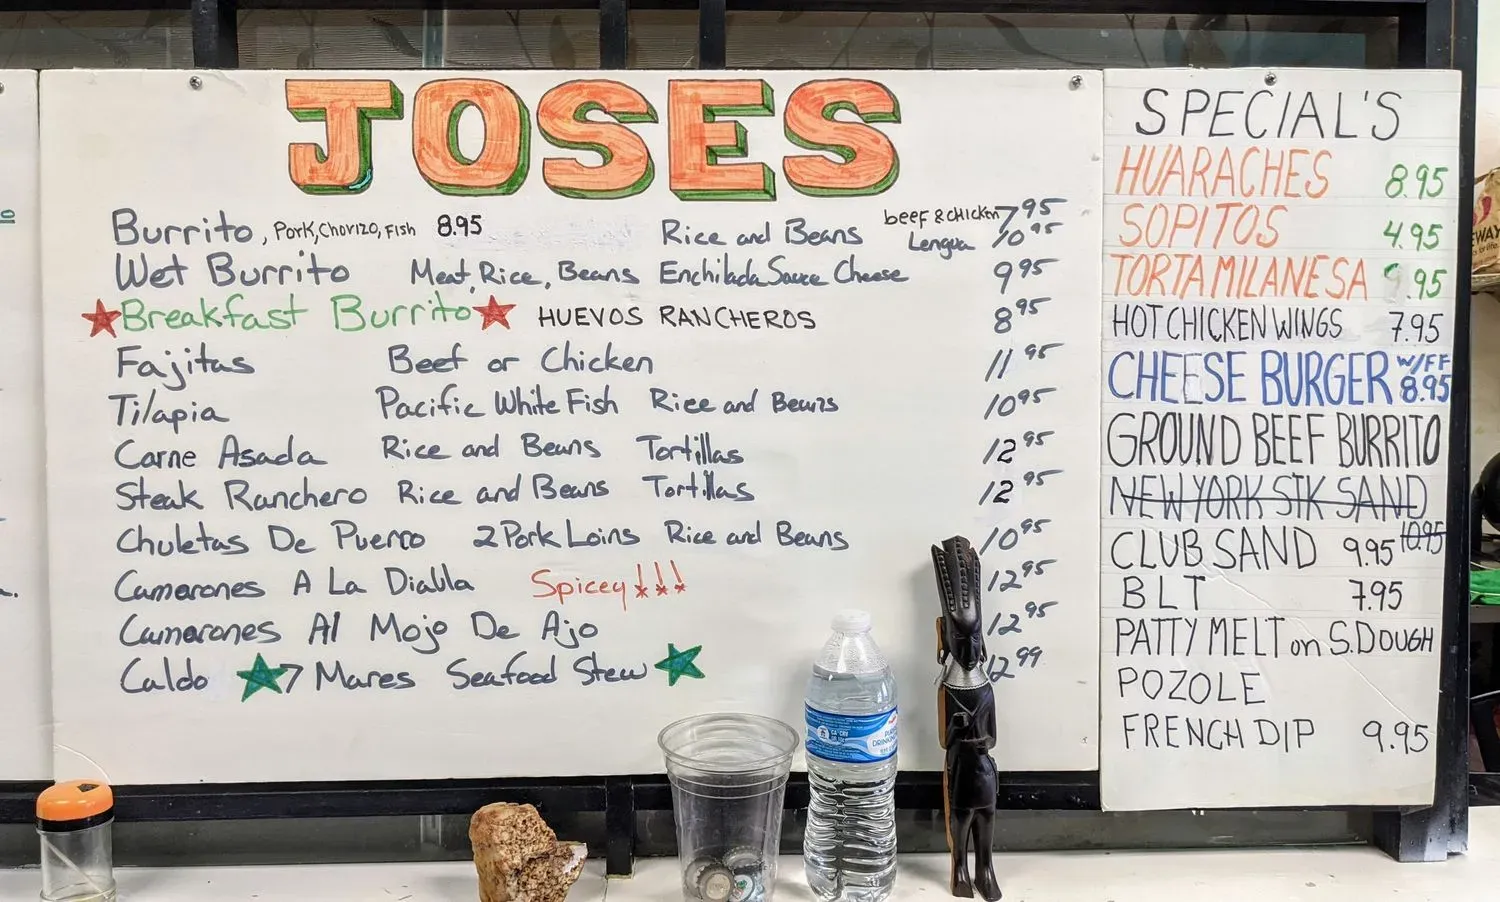 JOSES
Burrito, Pork, Chorizo, Fish 8.95 Rice and Beans beef & chicken 7 95
Lengua 10 95
Wet Burrito Meat, Rice, Beans Enchilada Sauce Cheese 9 95
Breakfast Burrito HUEVOS RANCHEROS 8 95
Fajitas Beef or Chicken 11 95
Tilapia Pacific White Fish Rice and Beans 10 95
Carne Asada Rice and Beans Tortillas 12 95
Steak Ranchero Rice and Beans Tortillas 12 95
Chuletas De Puerco 2 Pork Loins Rice and Beans 10 95
Camarones A La Diabla Spicey!!! 12 95
Camarones Al Mojo De Ajo 12 95
Caldo 7 Mares Seafood Stew 12 99
SPECIAL'S
HUARACHES 8.95
SOPITOS 4.95
TORTA MILANESA 9.95
HOT CHICKEN WINGS 7.95
CHEESE BURGER W/FF 8.95
GROUND BEEF BURRITO
NEW YORK STK SAND 10.95
CLUB SAND 9.95
BLT 7.95
PATTY MELT on S.DOUGH
POZOLE
FRENCH DIP 9.95